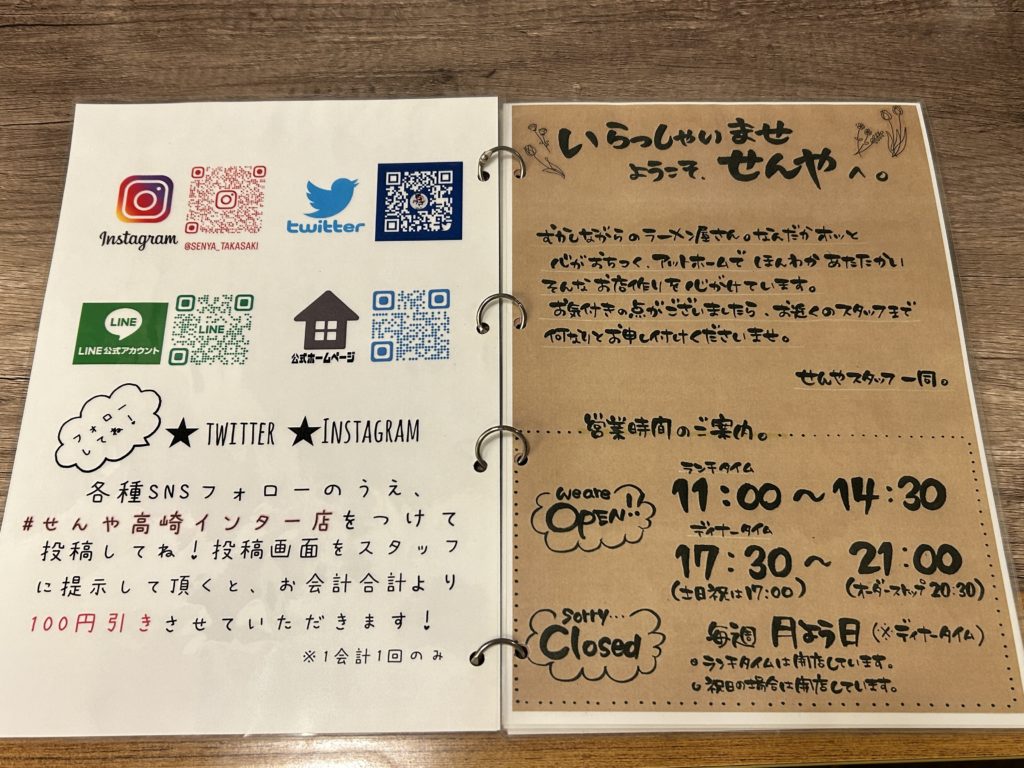 Instagram
@SENYA_TAKASAKI
twitter
LINE
LINE公式アカウント
LINE
公式ホームページ
フォローしてね!
★ TWITTER ★INSTAGRAM
各種SNSフォローのうえ、
#せんや高崎インター店をつけて
投稿してね!投稿画面をスタッフ
に提示して頂くと、お会計合計より
100円引きさせていただきます!
※1会計1回のみ
いらっしゃいませ
ようこそ、せんやへ。
むかしながらのラーメン屋さん。なんだかホッと
心がおちつく、アットホームで ほんわか あたたかい
そんなお店作りを心がけています。
お気付きの点がございましたら、お近くのスタッフまで
何なりとお申し付けくださいませ。
せんやスタッフ一同。
営業時間のご案内。
we are
OPEN!!
ランチタイム
11:00〜14:30
ディナータイム
17:30〜21:00
(土日祝は17:00)
(オーダーストップ20:30)
sorry...
Closed
毎週 月よう日(※ディナータイム)
。ランチタイムは開店しています。
。祝日の場合は開店しています。